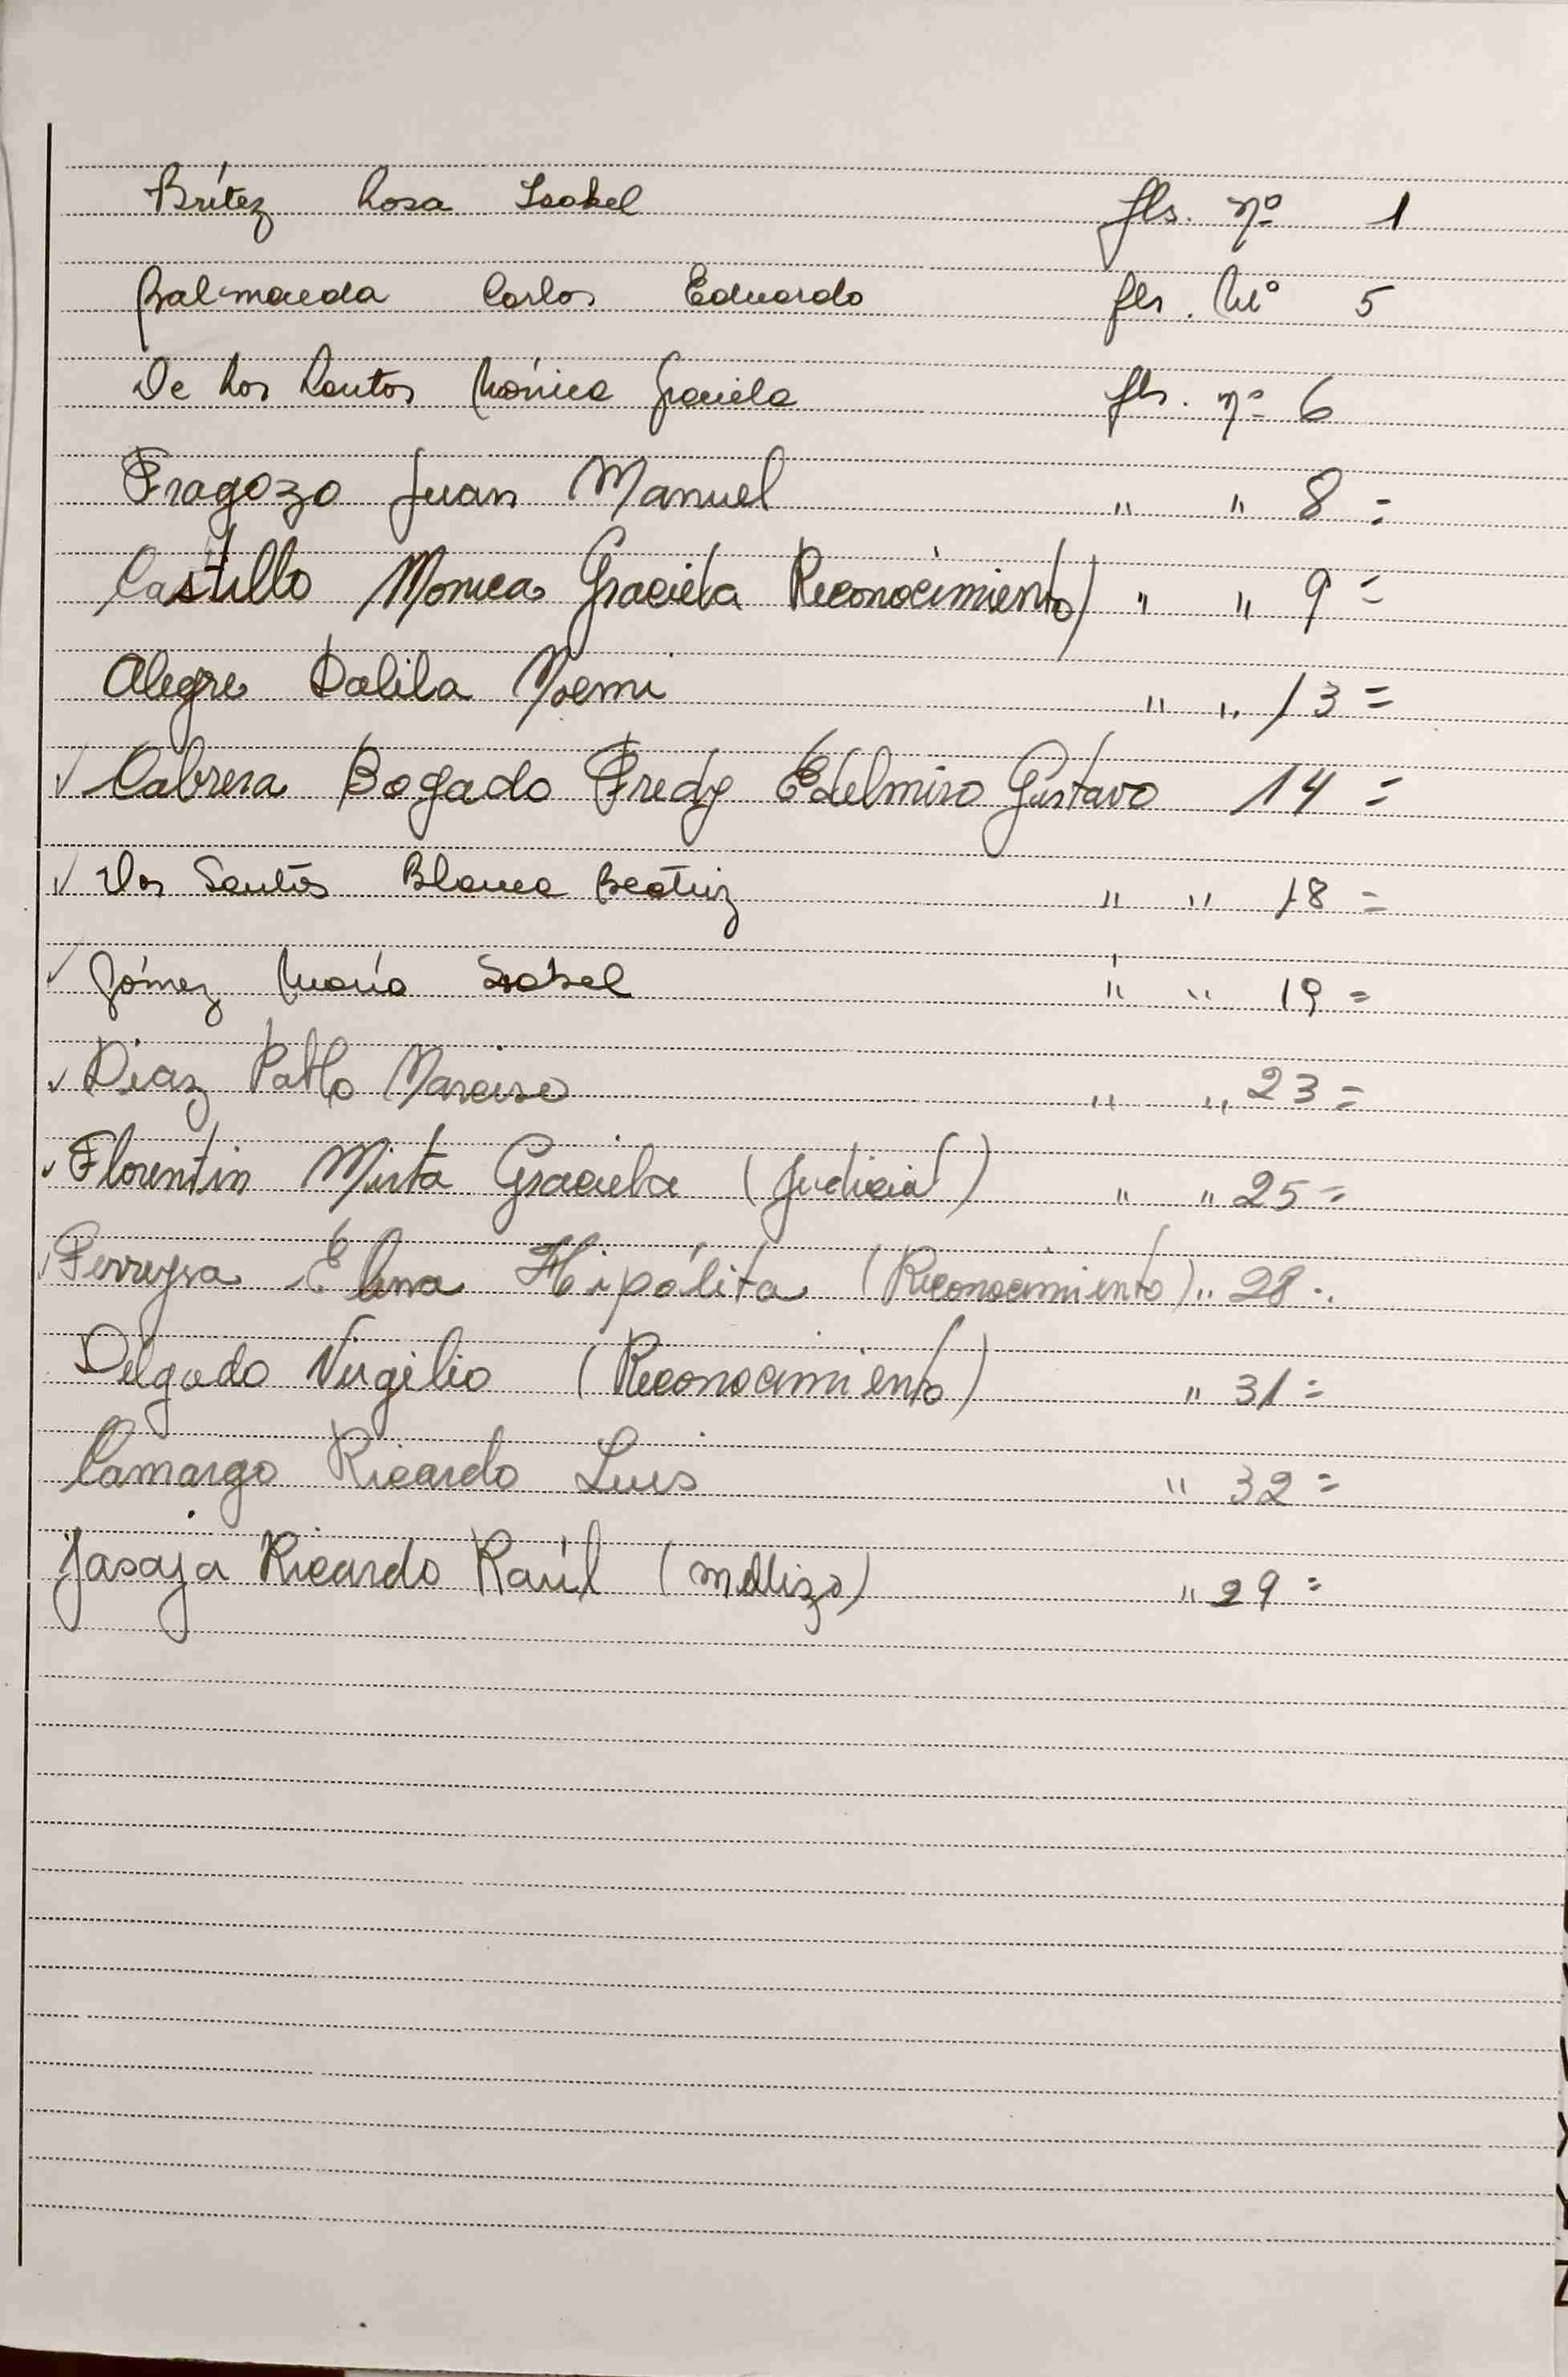 Brítez Rosa Isabel fls. nº 1
Balmaceda Carlos Eduardo fls. Nº 5
De Los Santos Mónica Graciela fls. nº 6
Fragozo Juan Manuel " " 8 =
Castillo Monica Graciela Reconocimiento) " " 9 =
Alegre Dalila Noemi " " 13 =
✓ Cabrera Bogado Fredy Edelmiro Gustavo 14 =
✓ Dos Santos Blanca Beatriz " " 18 =
✓ Gómez María Isabel " " 19 =
✓ Diaz Pablo Narciso " " 23 =
✓ Florentin Mirta Graciela (Judicial) " " 25 =
✓ Ferreyra Elena Hipólita (Reconocimiento) " 28 =
Delgado Virgilio (Reconocimiento) " 31 =
Camargo Ricardo Luis " 32 =
Ricardo Raúl (mellizo) " 29 =
Z